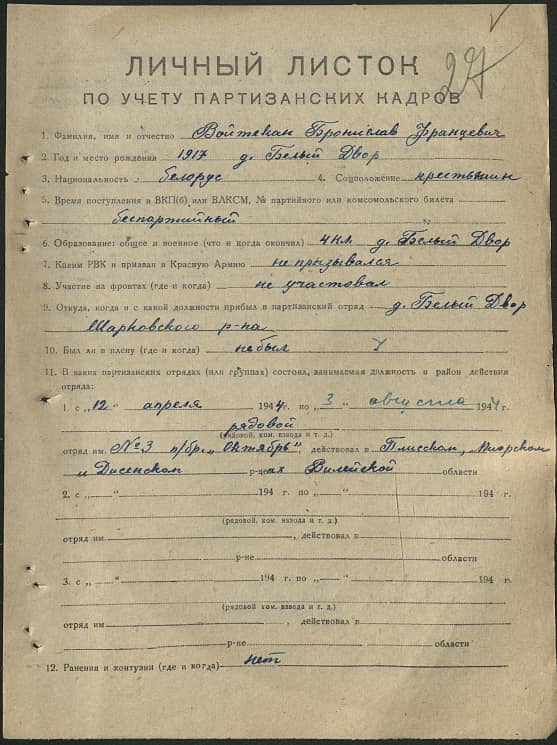 27
ЛИЧНЫЙ ЛИСТОК
ПО УЧЕТУ ПАРТИЗАНСКИХ КАДРОВ
1. Фамилия, имя и отчество Войтекан Броніслав Францевич
2. Год и место рождения 1917 д. Белый Двор
3. Национальность белорус 4. Соцположение крестьянин
5. Время поступления в ВКП(б) или ВЛКСМ, № партийного или комсомольского билета
беспартийный
6. Образование: общее и военное (что и когда окончил) 4 кл. д. Белый Двор
7. Каким РВК и призван в Красную Армию не призывался
8. Участие на фронтах (где и когда) не участвовал
9. Откуда, когда и с какой должности прибыл в партизанский отряд д. Белый Двор
Шарковского р-на
10. Был ли в плену (где и когда) не был
11. В каких партизанских отрядах (или группах) состоял, занимаемая должность и район действия
отряда:
1. с „12" апреля 1944 г. по „3" августа 1944 г.
рядовой
(рядовой, ком. взвода и т. д.)
отряд им. №3 п/бр. „Октябрь", действовал в Плисском, Миорском
и Дисенском р-цах Вилейской области
2. с „ " 194 г. по „ " 194 г.
(рядовой, ком. взвода и т. д.)
отряд им , действовал в
р-не области
3. с „ " 194 г. по „ " 194 г.
(рядовой, ком. взвода и т. д.)
отряд им , действовал в
р-не области
12. Ранения и контузии (где и когда) нет